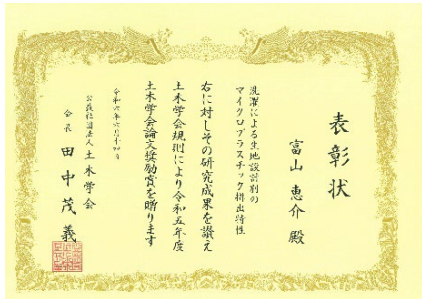 表彰状
富山 恵介 殿
洗濯による生地設計別の
マイクロプラスチック排出特性
右に対しその研究成果を讃え
土木学会規則により令和五年度
土木学会論文奨励賞を贈ります
令和六年六月十四日
公益社団法人 土木学会
会長 田中茂義